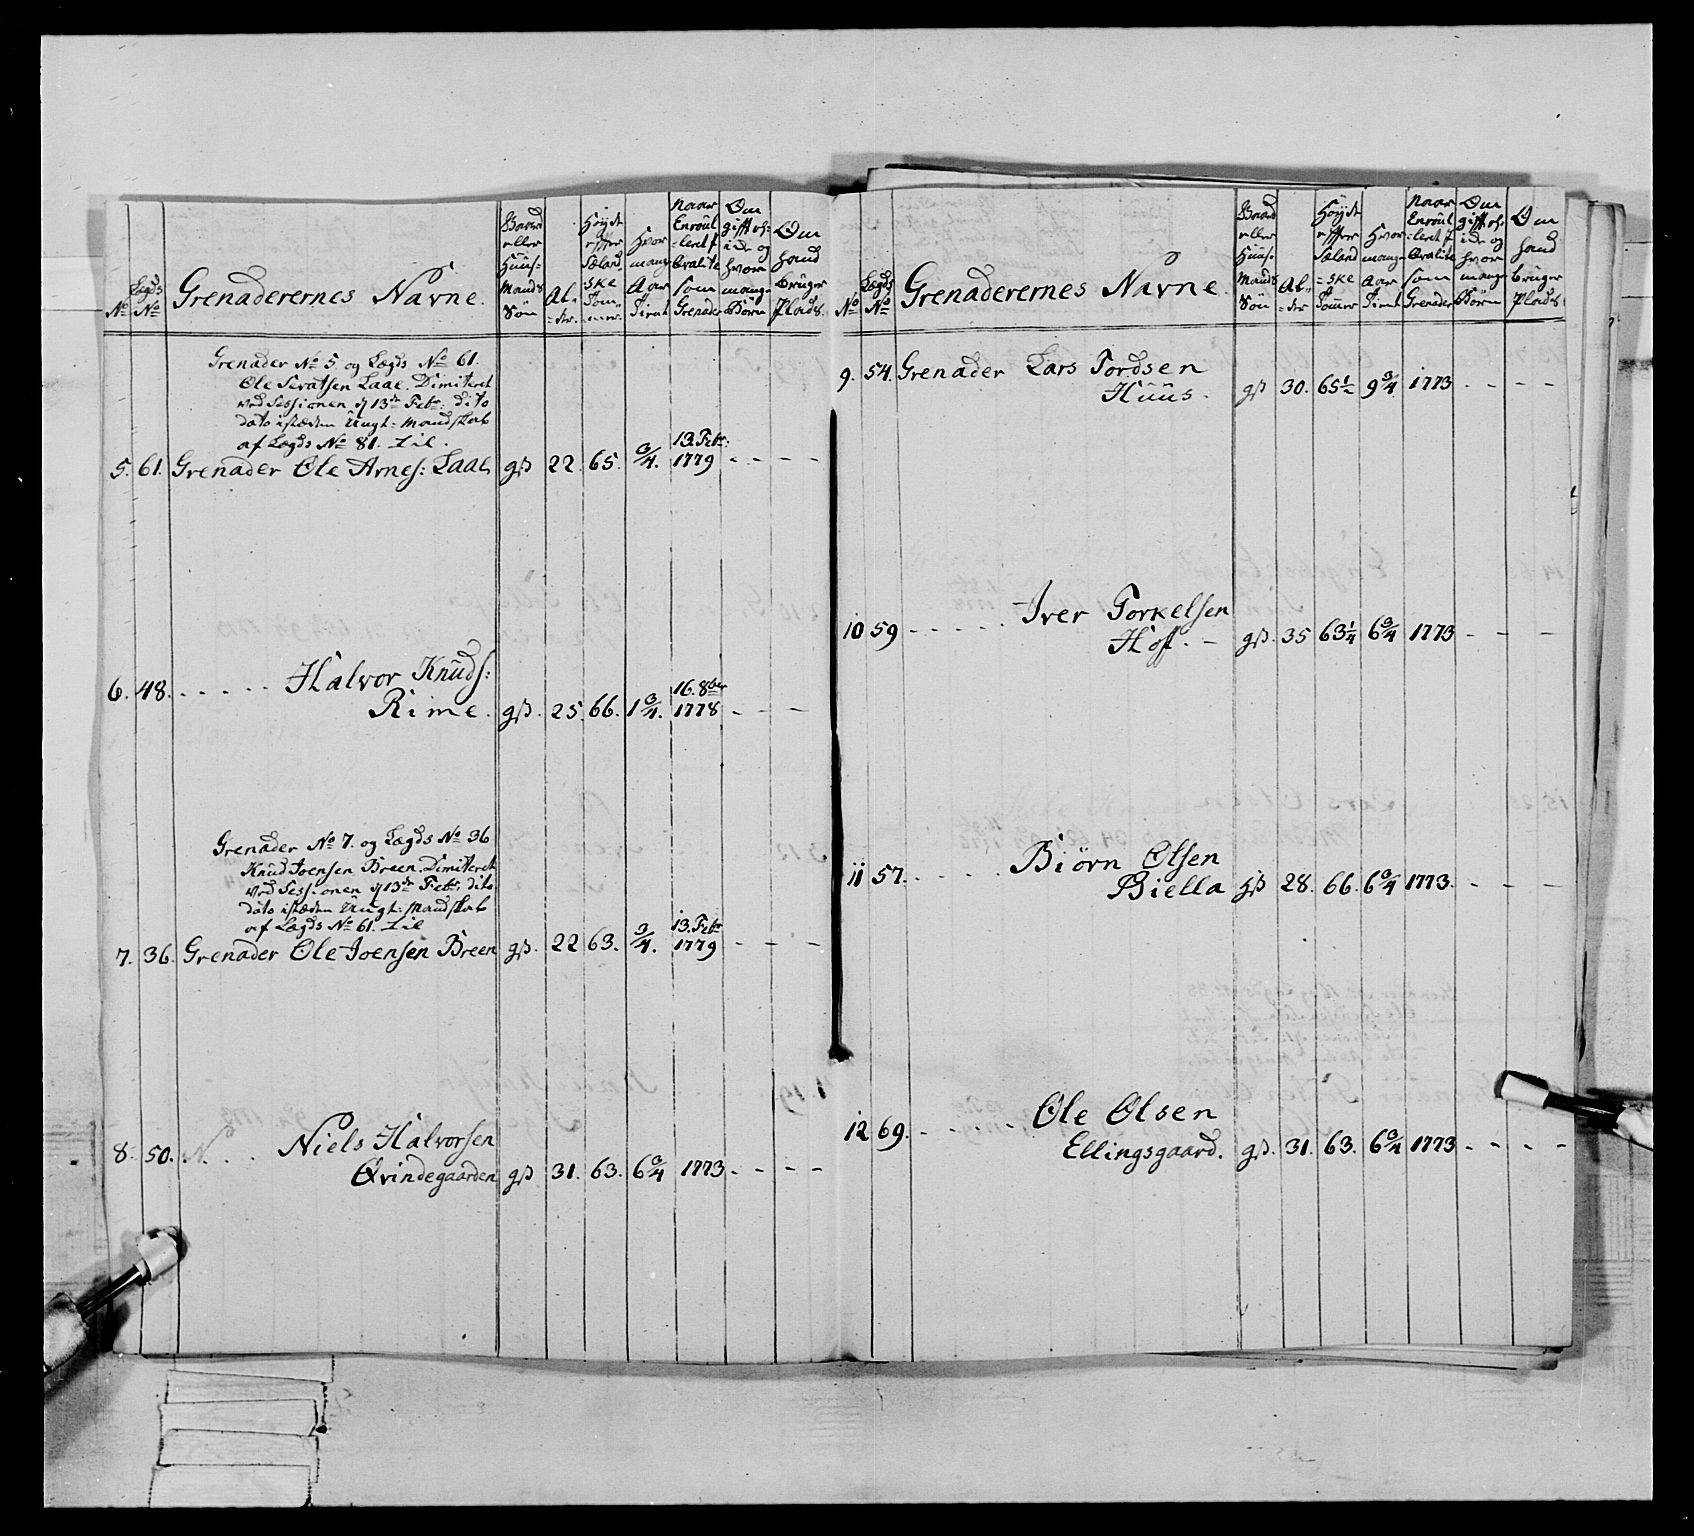 No
Lægds No
Grenaderernes Navne.
Bonde eller Huus- Mands Søn
Al- der.
Høyde effter Sælandske Tommer.
Hvor mange Aar Tient
Naar Enroulleret i Qvalite som Grenader
Om gifft er: ide og hvor mange Børn
Om hand bruger Plads.
Grenader No 5 og Lægds No 61.
Ole Laae. Dimiteret
ved Sessionen d 13de Febr: dito
dato isteden Ungt: Mandskab
af Lægds No 81. til.
5. 61. Grenader Ole Arnes: Laae gß 22 65. 3/4. 13. Febr: 1779 - - - -
6. 48. - - - - - Halvor Knuds:
Rime. gß. 25. 66. 1 3/4. 16. 8ber 1778 - - -
Grenader No 7. og Lægds No 36
Knud Joensen Breen. Dimiteret
ved Sessionen d 13de Febr. dito
dato isteden Ungt: Mandskab
af Lægds No 61. til
7. 36. Grenader Ole Joensen Breen gß. 22 63. 3/4. 13. Febr 1779 - - - -
8. 50. N. . . . Niels Halvorsen
Qvindegaarden gß 31. 63. 6 3/4 1773 - - - -
No
Lægds No
Grenaderernes Navne.
Bond eller Huus- Mands Søn
Al- der
Høyde effter Sælandske Tommer
Hvor mange Aar Tient
Naar Enroulleret i Qvalite som Grenader
Om gifft er: ide og hvor mange Børn
Om hand bruger Plads
9. 54. Grenader Lars Tordsen
Huus. gß 30. 65 1/2 9 3/4 1773 - - - -
10 59 - - - - - Iver Torkelsen
Hof. - gß. 35 63 1/4 6 3/4 1773 - - -
11 57. - - - - - Biörn Olsen
Biella gß 28. 66. 6 3/4 1773. - - -
12 69. - - - - - Ole Olsen
Ellingsgaard. gß. 31. 63. 6 3/4 1773 - - - -